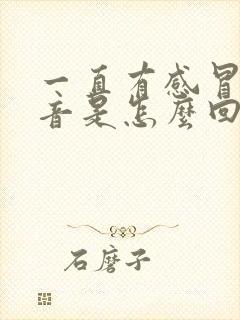 一直有感冒
音是怎麼回
石磨子